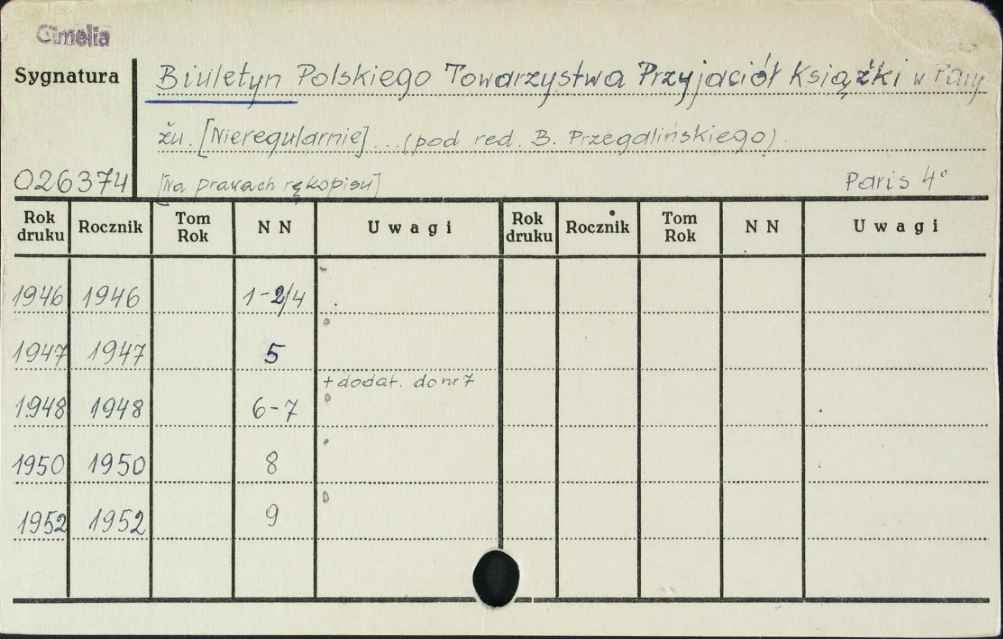 Gimelia
Sygnatura
Biuletyn Polskiego Towarzystwa Przyjaciół Książki w Pary
żu. [Nieregularnie] ... (pod red. B. Przegalińskiego).
026374 [Na prawach rękopisu] Paris 4°
Rok druku Rocznik Tom Rok N N Uwagi Rok druku Rocznik Tom Rok N N Uwagi
1946 1946 1-2/4
1947 1947 5
+ dodat. do nr 7
1948 1948 6-7
1950 1950 8
1952 1952 9